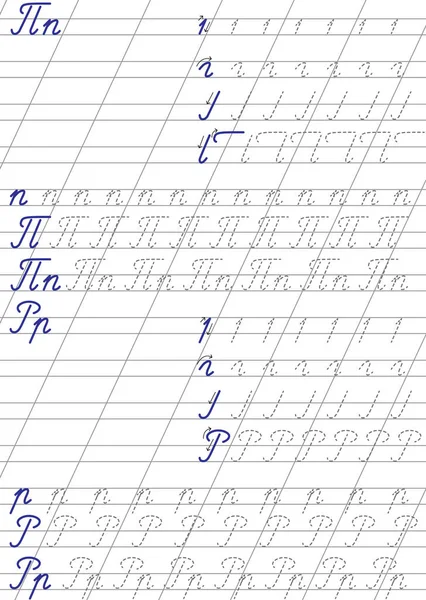 Пп
п п п п п п п п п п п п п
П П П П П П П П П П
Пп Пп Пп Пп Пп Пп Пп
Рр
Р Р Р Р Р Р Р
р р р р р р р р р р
Р Р Р Р Р Р Р Р Р Р
Рр Рр Рр Рр Рр Рр Рр